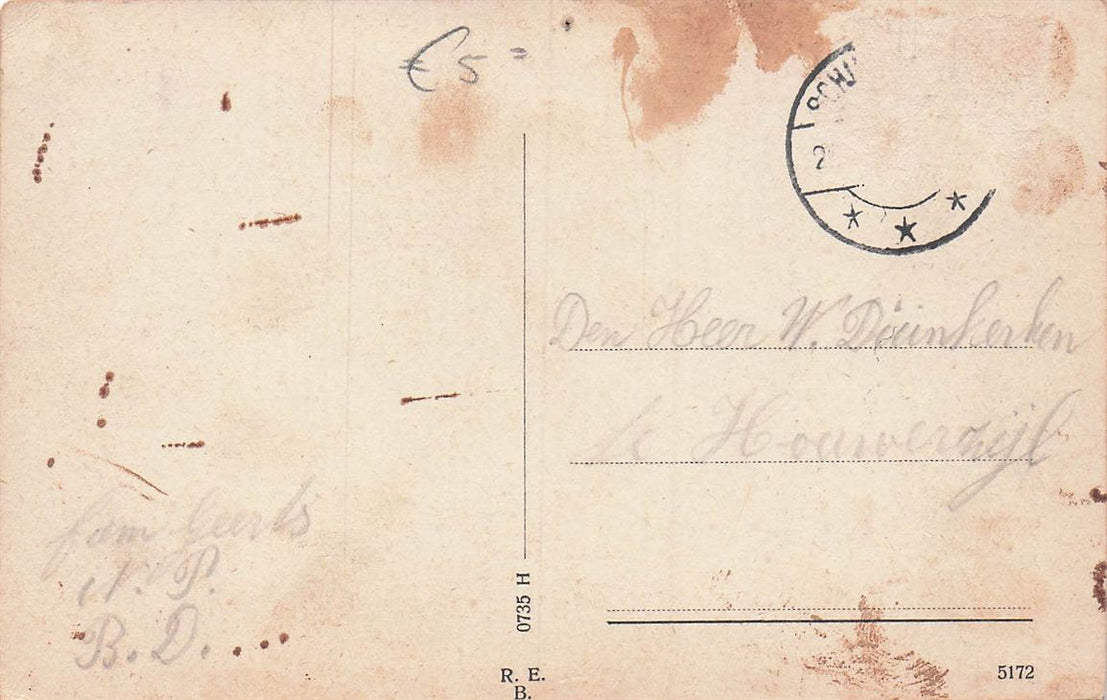 € 5 =
2
Den Heer W. Duinkerken
te Houwerzijl
fam Geerts
N. P.
B. D.
0735 H
R. E.
B.
5172